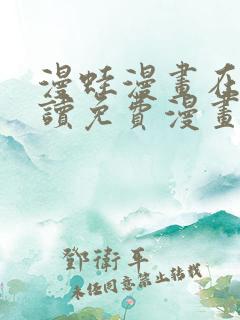 漫蛙漫畫在
讀免費漫畫
鄧衛平
未經同意禁止轉載